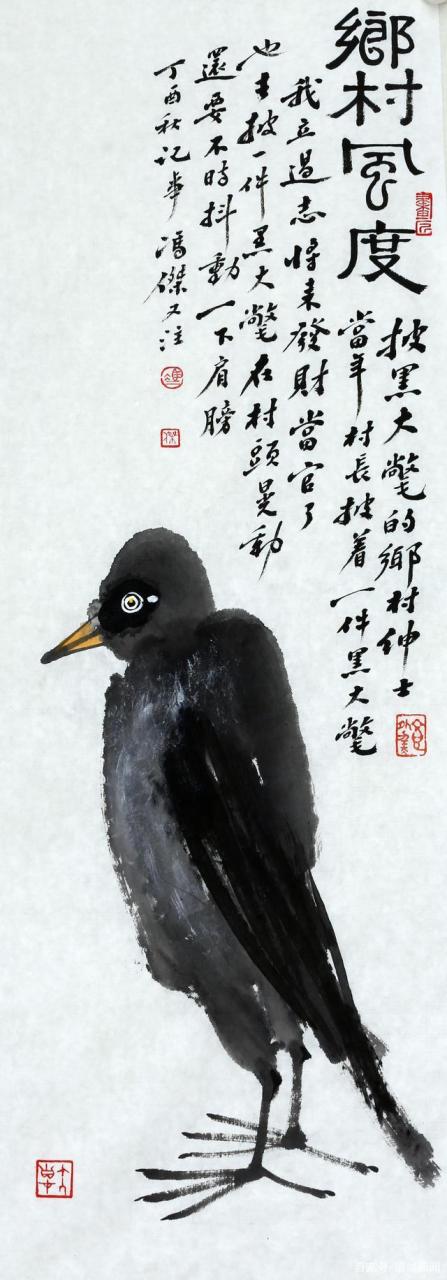 鄉村風度
披黑大氅的鄉村紳士
當年村長披着一件黑大氅
我立過志將來發財當官了
也披一件黑大氅在村頭晃動
還要不時抖動一下肩膀
丁酉秋記事 馮傑又注